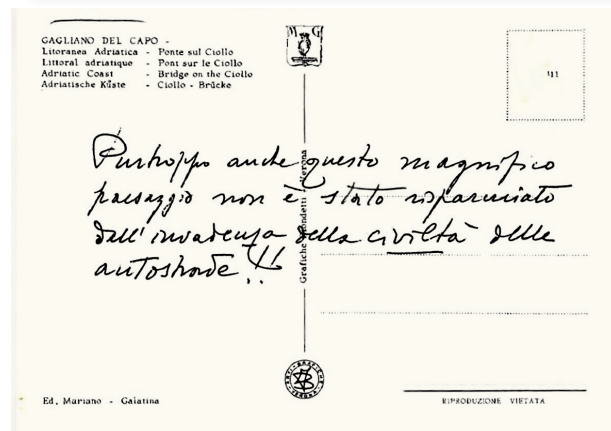 GAGLIANO DEL CAPO -
Litoranea Adriatica - Ponte sul Ciollo
Littoral adriatique - Pont sur le Ciollo
Adriatic Coast - Bridge on the Ciollo
Adriatische Küste - Ciollo - Brücke
M G
411
Purtroppo anche questo magnifico
paesaggio non è stato risparmiato
dall'invadenza della civiltà delle
autostrade!!
Grafiche Mondetti - Verona
Ed. Mariano - Galatina
RIPRODUZIONE VIETATA